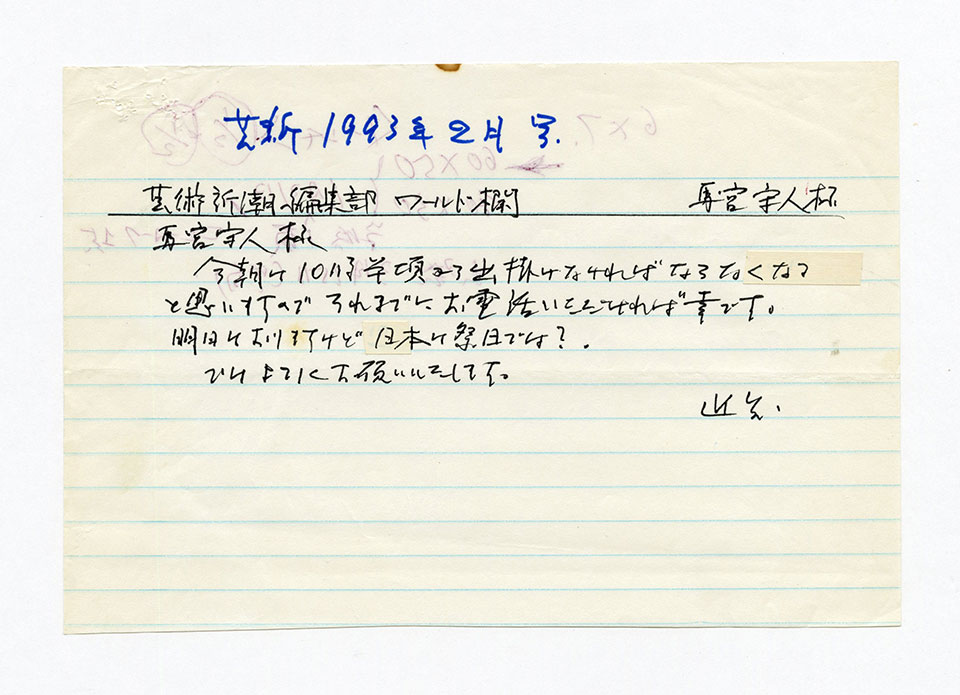 芸新 1993年2月号.
芸術新潮編集部 ワールド欄 馬宮守人様
馬宮守人様
今朝は10時半頃から出掛けなければならなくなる
と思いますので それまでに、お電話いただければ幸です。
明日はおりますけど 日本は祭日では?.
ではよろしくお願いいたします。
6×7.
60×50